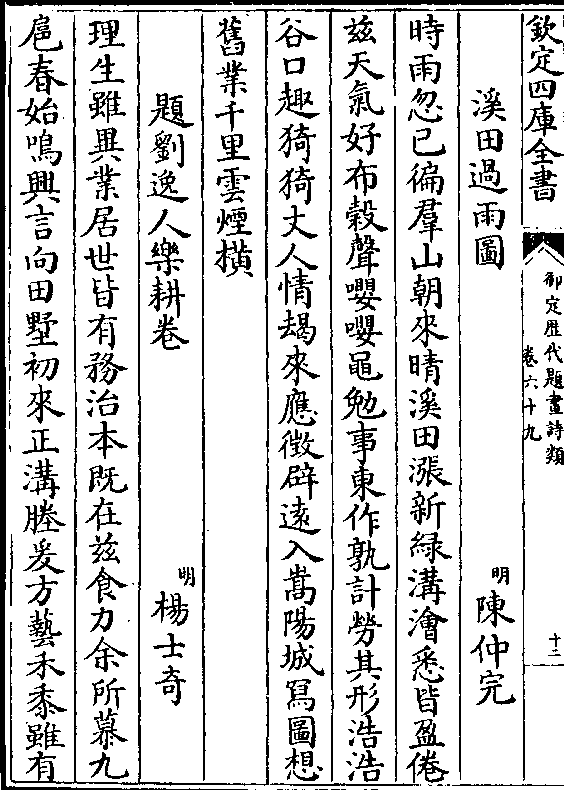 欽定四庫全書
御定歴代題畫詩類
卷六十九
十二
溪田過雨圖
明
陳仲完
時雨忽已徧羣山朝來晴溪田漲新緑溝澮悉皆盈倦
兹天氣好布榖聲嚶嚶黽勉事東作孰計勞其形浩浩
谷口趣猗猗丈人情朅來應徴辟遠入嵩陽城冩圖想
舊業千里雲煙横
題劉逸人樂耕卷
明
楊士奇
理生雖異業居世皆有務治本既在兹食力余所慕九
扈春始鳴興言向田墅初來正溝塍爰方藝禾黍雖有